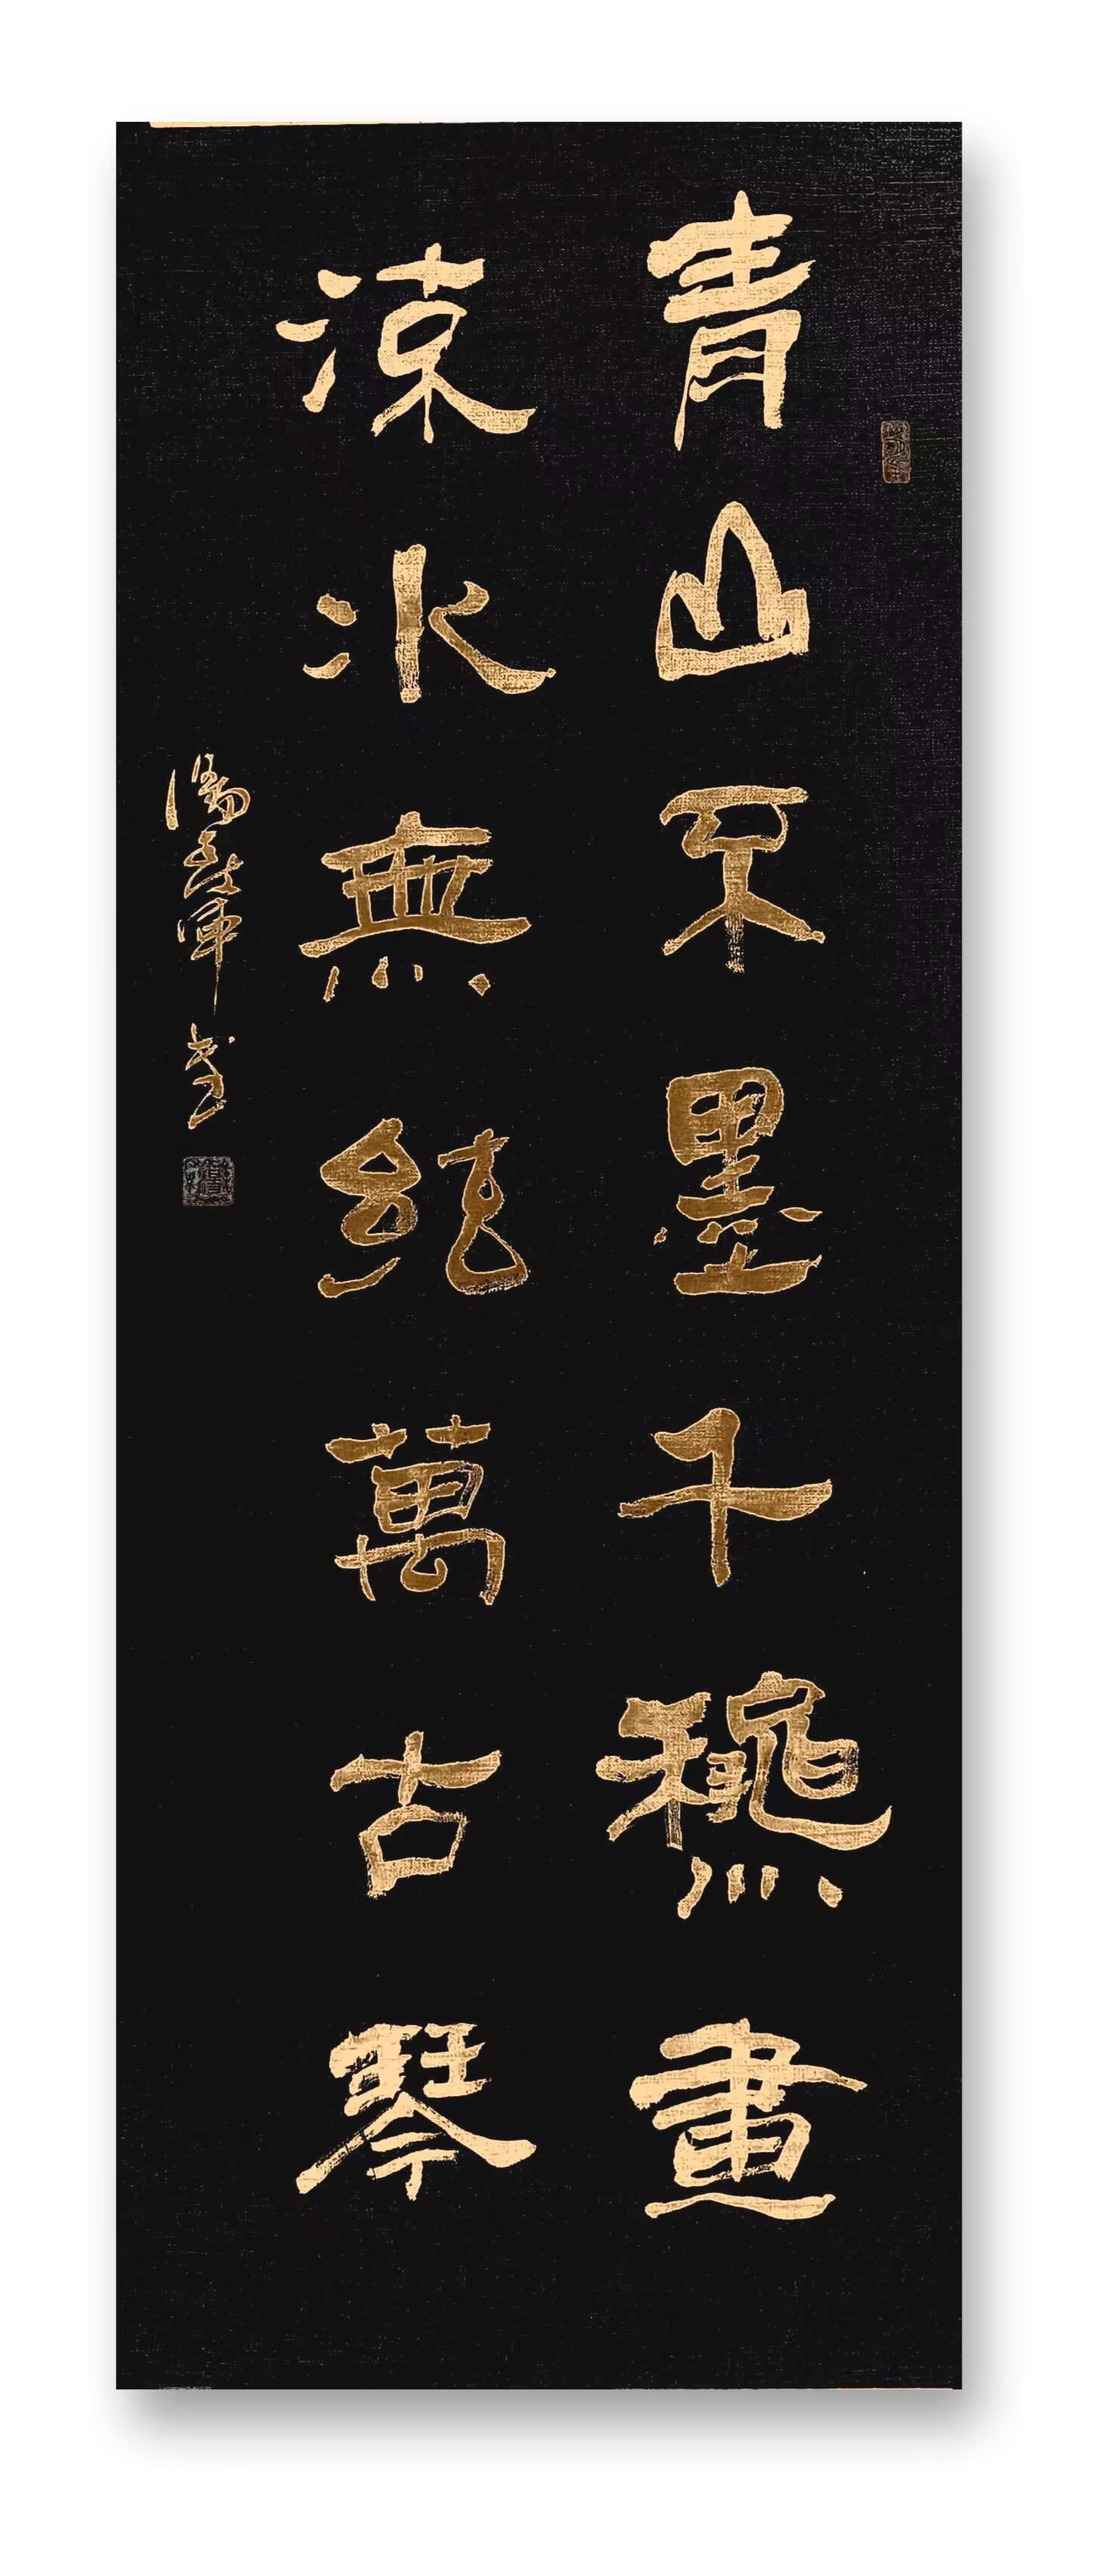 青山不墨千龝畫
流水無絃萬古琴
書